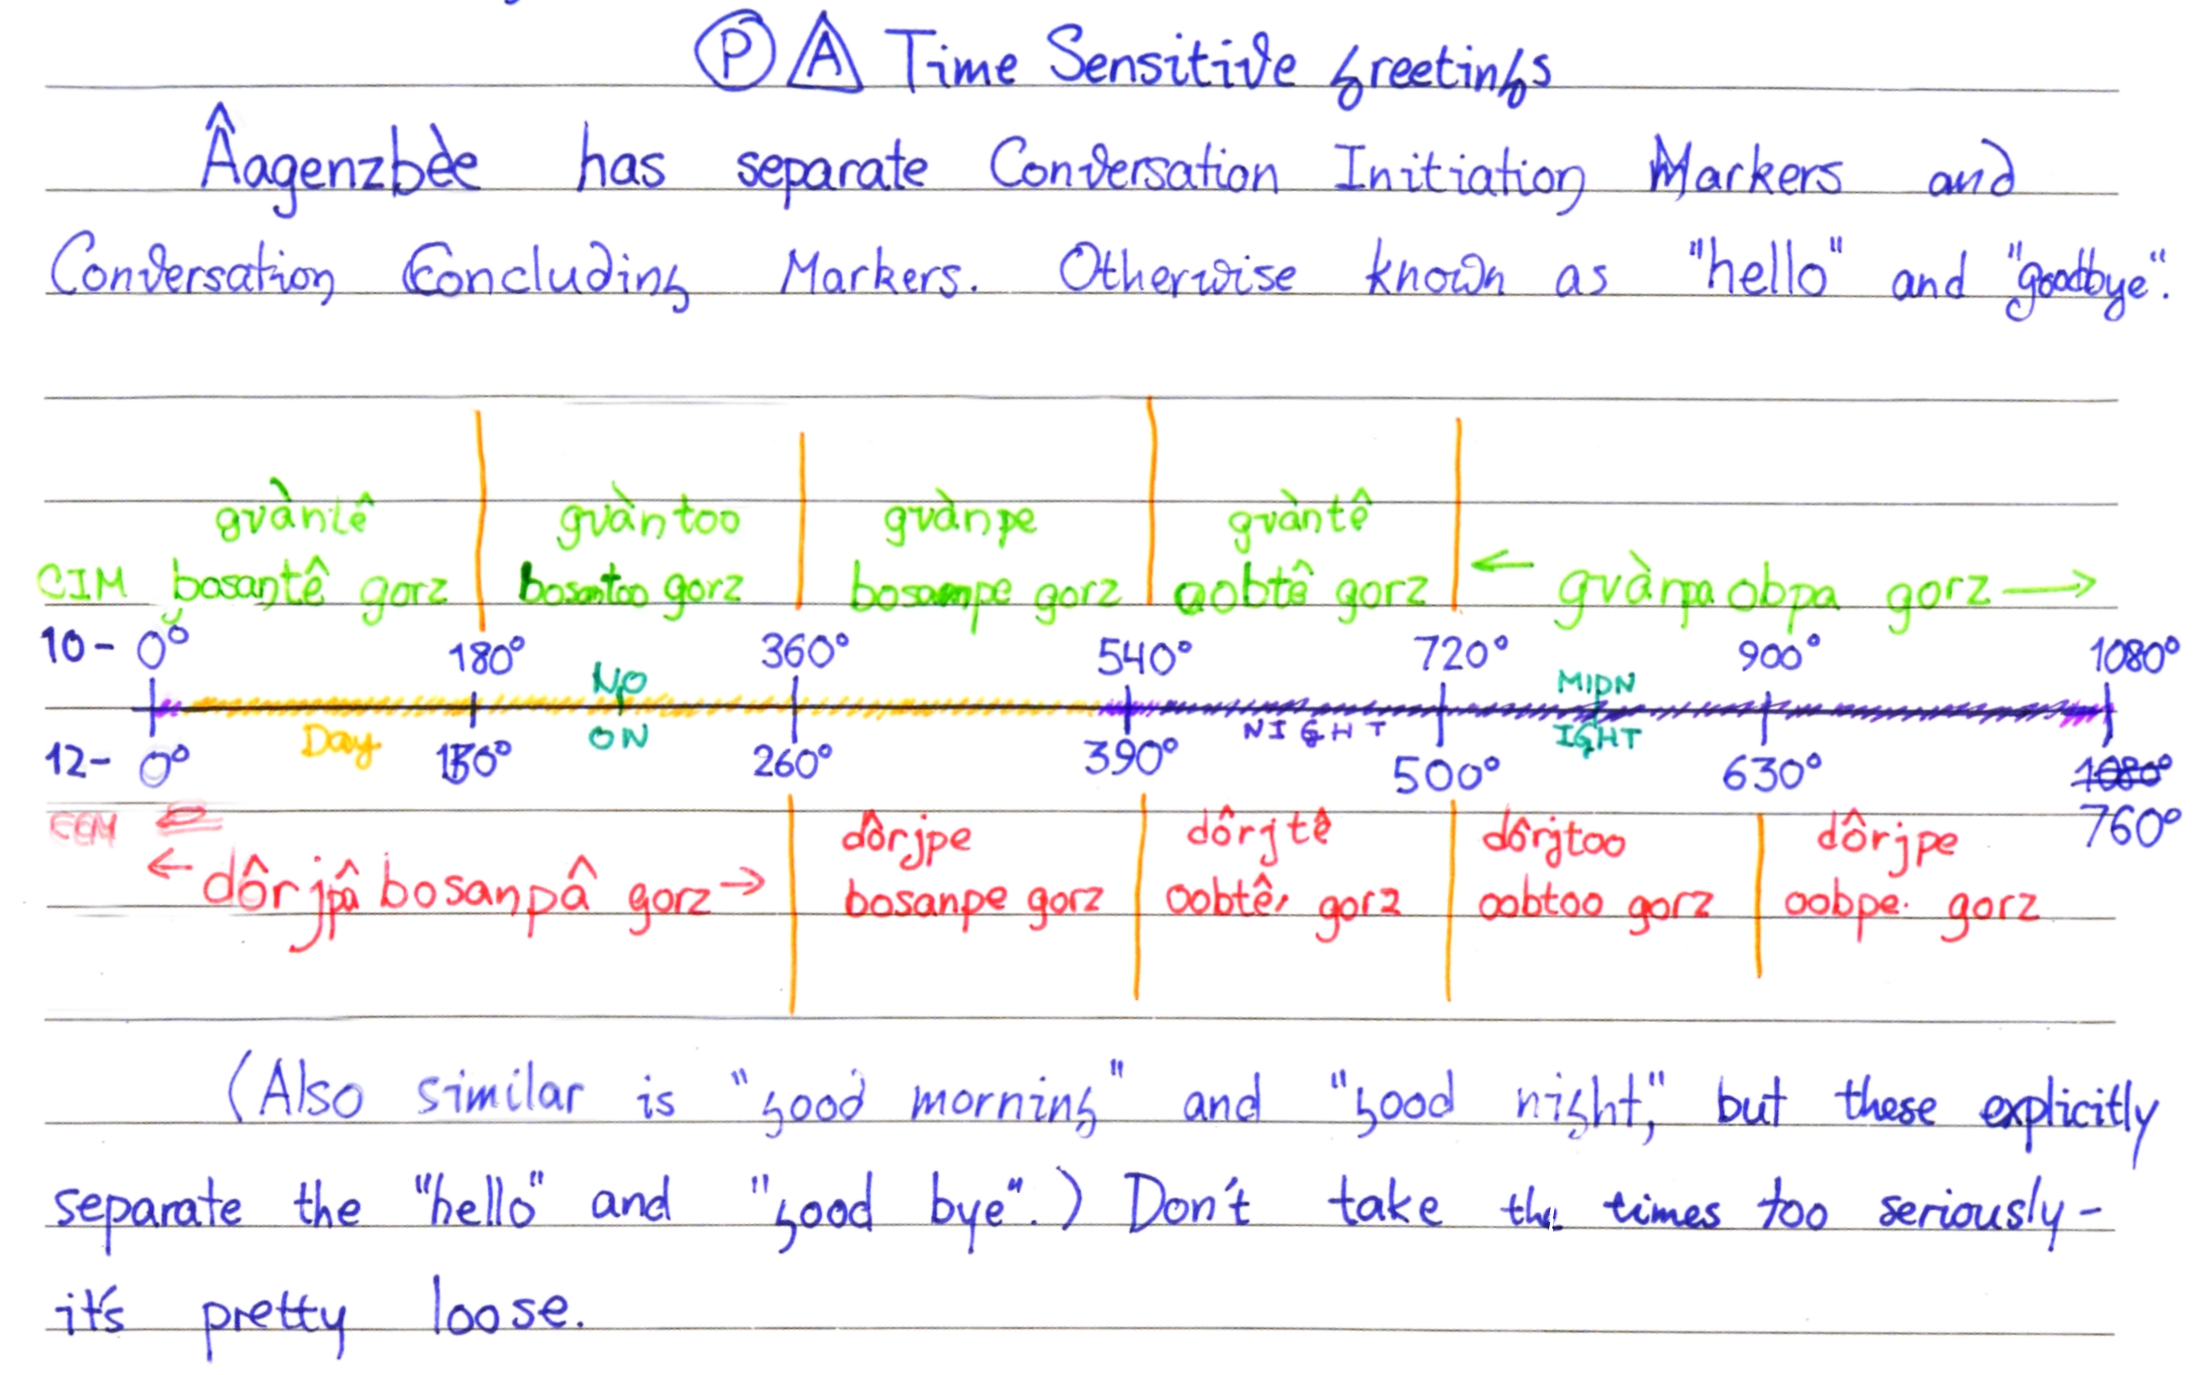 P A Time Sensitive Greetings
Âagenzbèe has separate Conversation Initiation Markers and
Conversation Concluding Markers. Otherwise known as "hello" and "goodbye".
gvàntê gvàntoo gvànpe gvàntê
CIM bosantê gorz bosantoo gorz bosanpe gorz oobtê gorz ← gvànpa obpa gorz →
10- 0° 180° 360° 540° 720° 900° 1080°
NO MIDN
Day ON NIGHT IGHT
12- 0° 130° 260° 390° 500° 630° 1080°
760°
dôrjpe dôrjtê dôrjtoo dôrjpe
← dôrjpâ bosanpâ gorz → bosanpe gorz oobtê, gorz oobtoo gorz oobpe. gorz
(Also similar is "good morning" and "good night," but these explicitly
separate the "hello" and "good bye".) Don't take the times too seriously-
it's pretty loose.